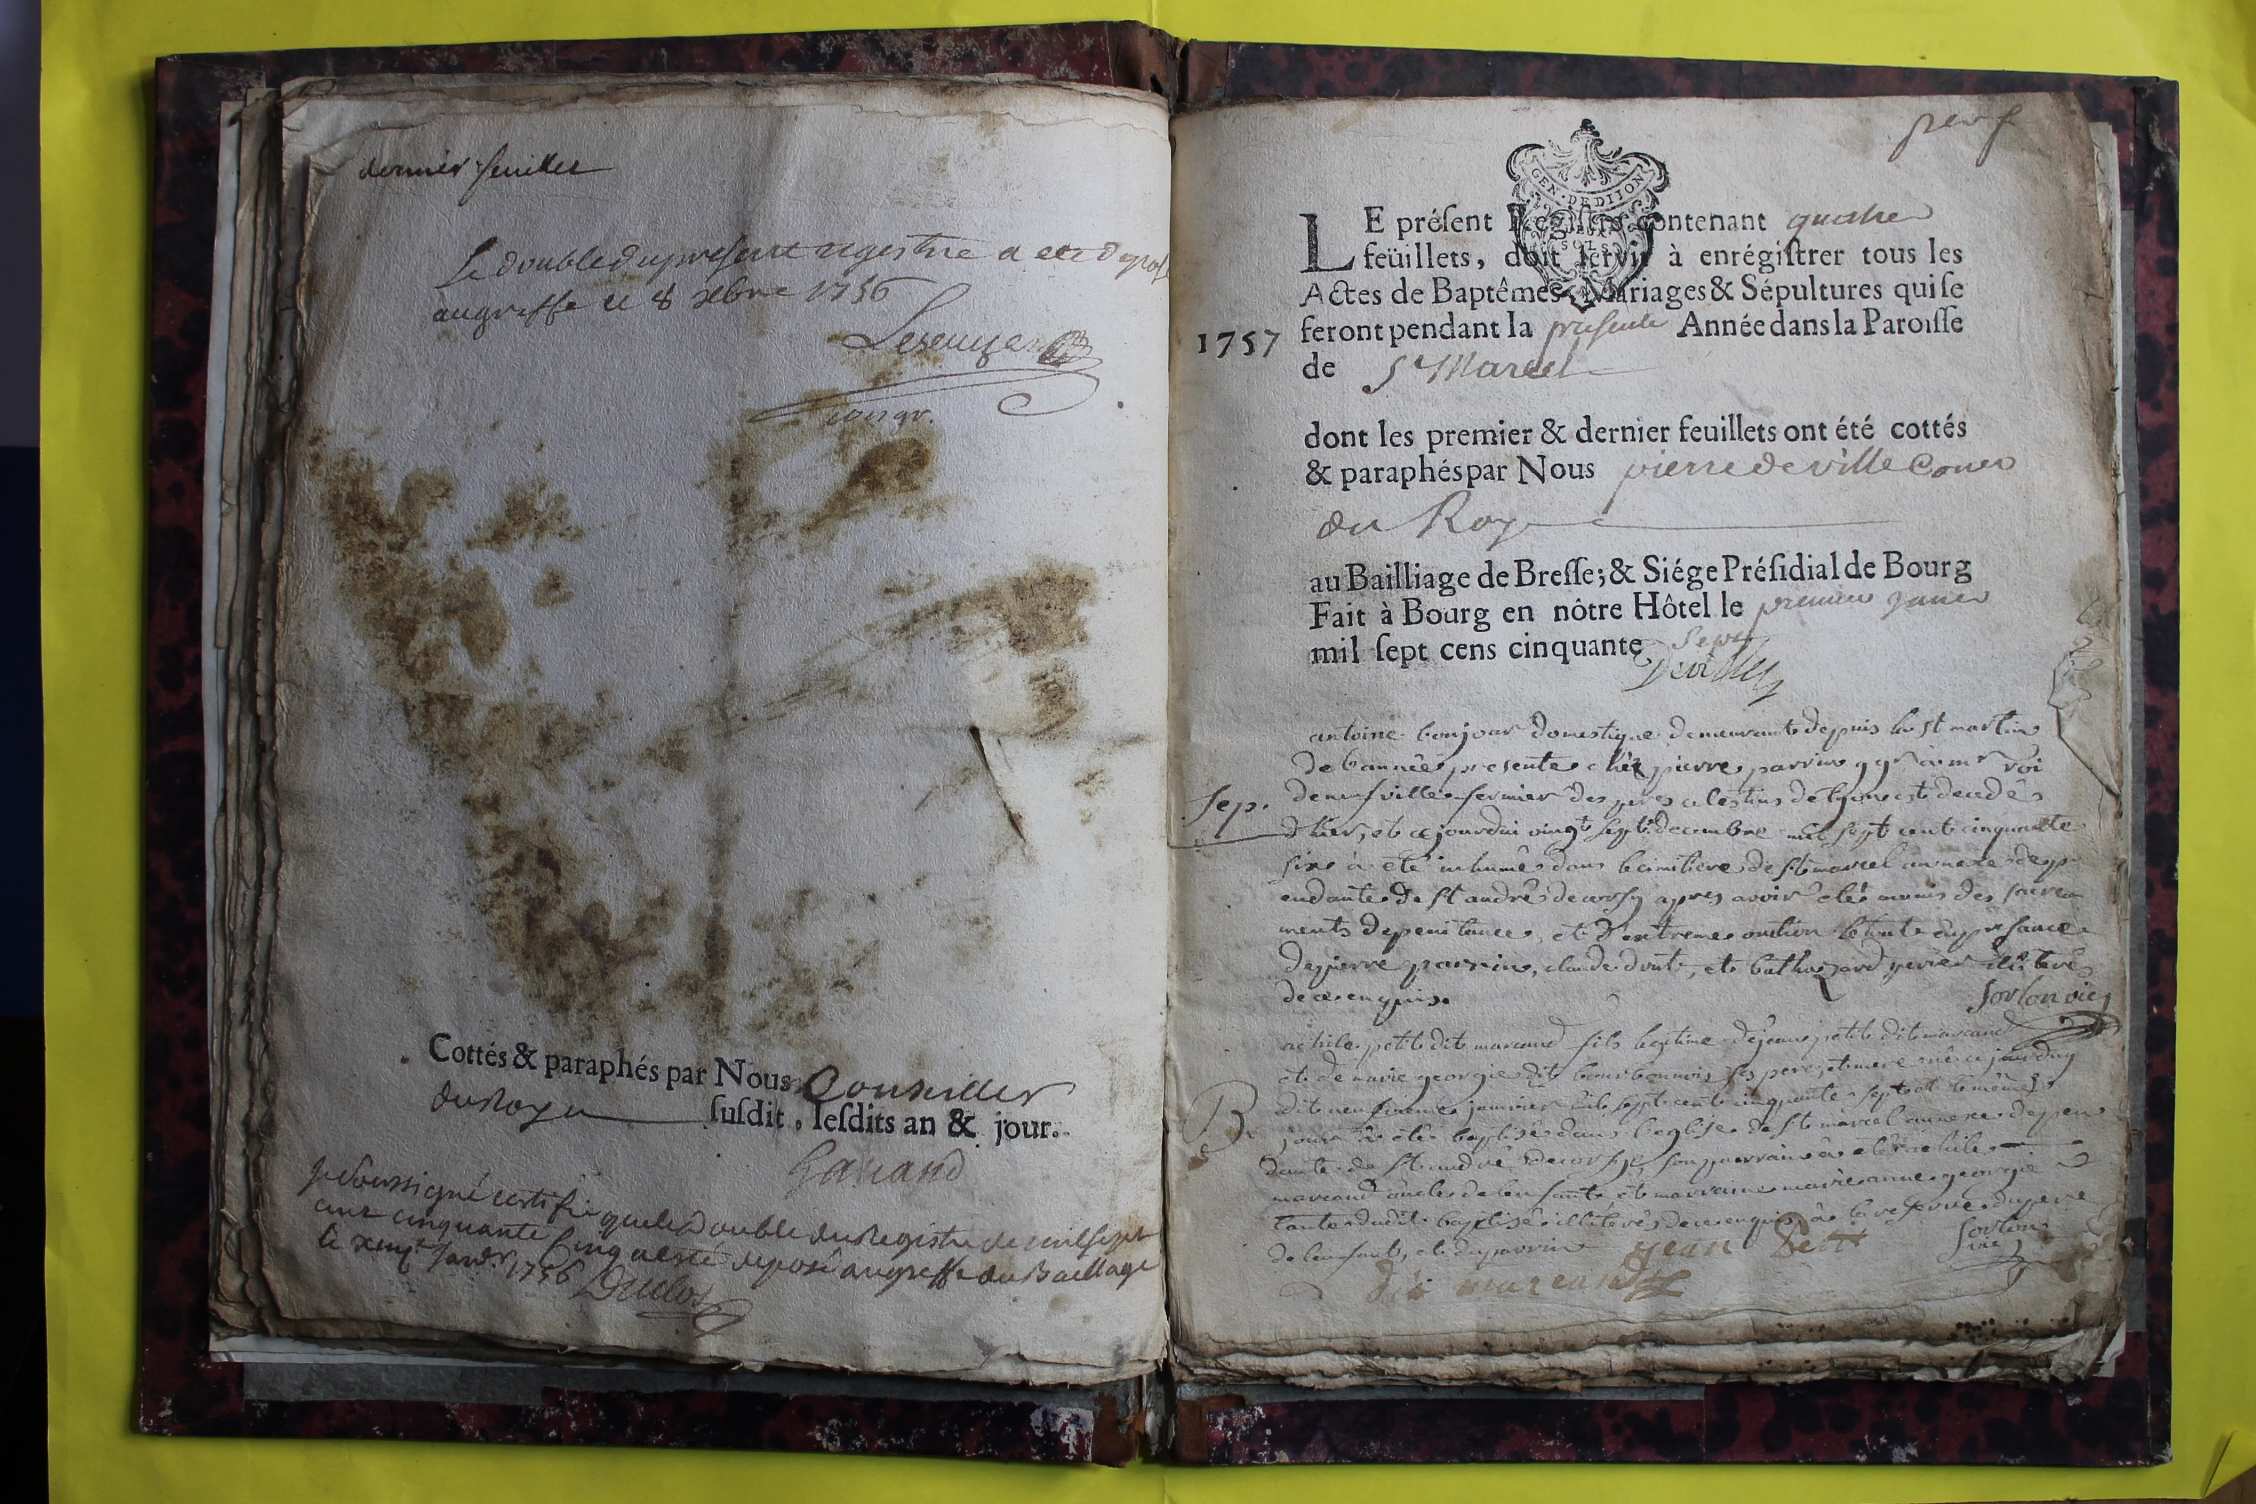 dernier feuillet
Le double du present registre a eté deposé
au greffe le 8 xbre 1756
Cottés & paraphés par Nous Conseiller
du Roy susdit, lesdits an & jour.
Garand
Je soussigné certifie que le double du Registre de mil sept
cent cinquante cinq a esté deposé au greffe du Bailliage
le janv. 1756 Duclos
GEN. DE DIJON
SOLS
LE présent Registre contenant quatre
feüillets, doit servir à enrégistrer tous les
Actes de Baptêmes, Mariages & Sépultures qui se
1757 feront pendant la presente Année dans la Paroisse
de St Marcel
dont les premier & dernier feuillets ont été cottés
& paraphés par Nous pierre deville Coner
du Roy
au Bailliage de Bresse; & Siége Présidial de Bourg
Fait à Bourg en nôtre Hôtel le premier janer
mil sept cens cinquante sept
Deville
antoine bonjour domestique demeurant depuis la st martin
de l'année presente chéz pierre parrin
Sep. de neufville fermier des peres celestins de lyon est decedé
d'hier, et ce jourdui vingt sept decembre mil sept cent cinquante
six à eté inhumé dans le cimitiere de st marcel annexe dep
endante de st andré de corsy apres avoir eté munis des sacre
ments de penitance, et d'extreme onction le tout en presance
de pierre parrin, claude drut, et balthazard perier illiterés
de ce enquis.
Sorlon vic
achile petit dit marcand fils legitime de jean petit dit marcand
et de marie georgie dit bourbonnois ses pere, et mere né ce jourduy
B. dit neufvieme janvier mil sept cent cinquante sept et le même
jour à eté baptisé dans l'eglise de st marcel annexe depen
dante de st andré de corsy, son parrain à eté achile
marcand oncle de l'enfant et marraine marie anne georgie
tante dudit baptisé illiterés de ce enquis à la reserve du pere
de l'enfant, et du parrin jean Petit Sorlon
dit marcand vic